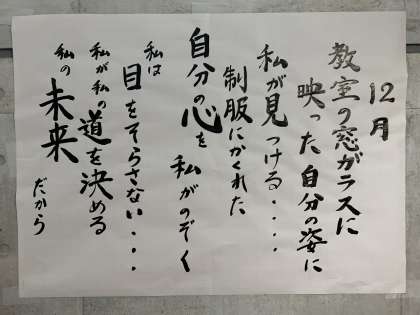 12月
教室の窓ガラスに
映った自分の姿に
私が見つける・・・・
制服にかくれた
自分の心を私がのぞく
私は
目をそらさない・・・
私が私の道を決める
私の未来だから